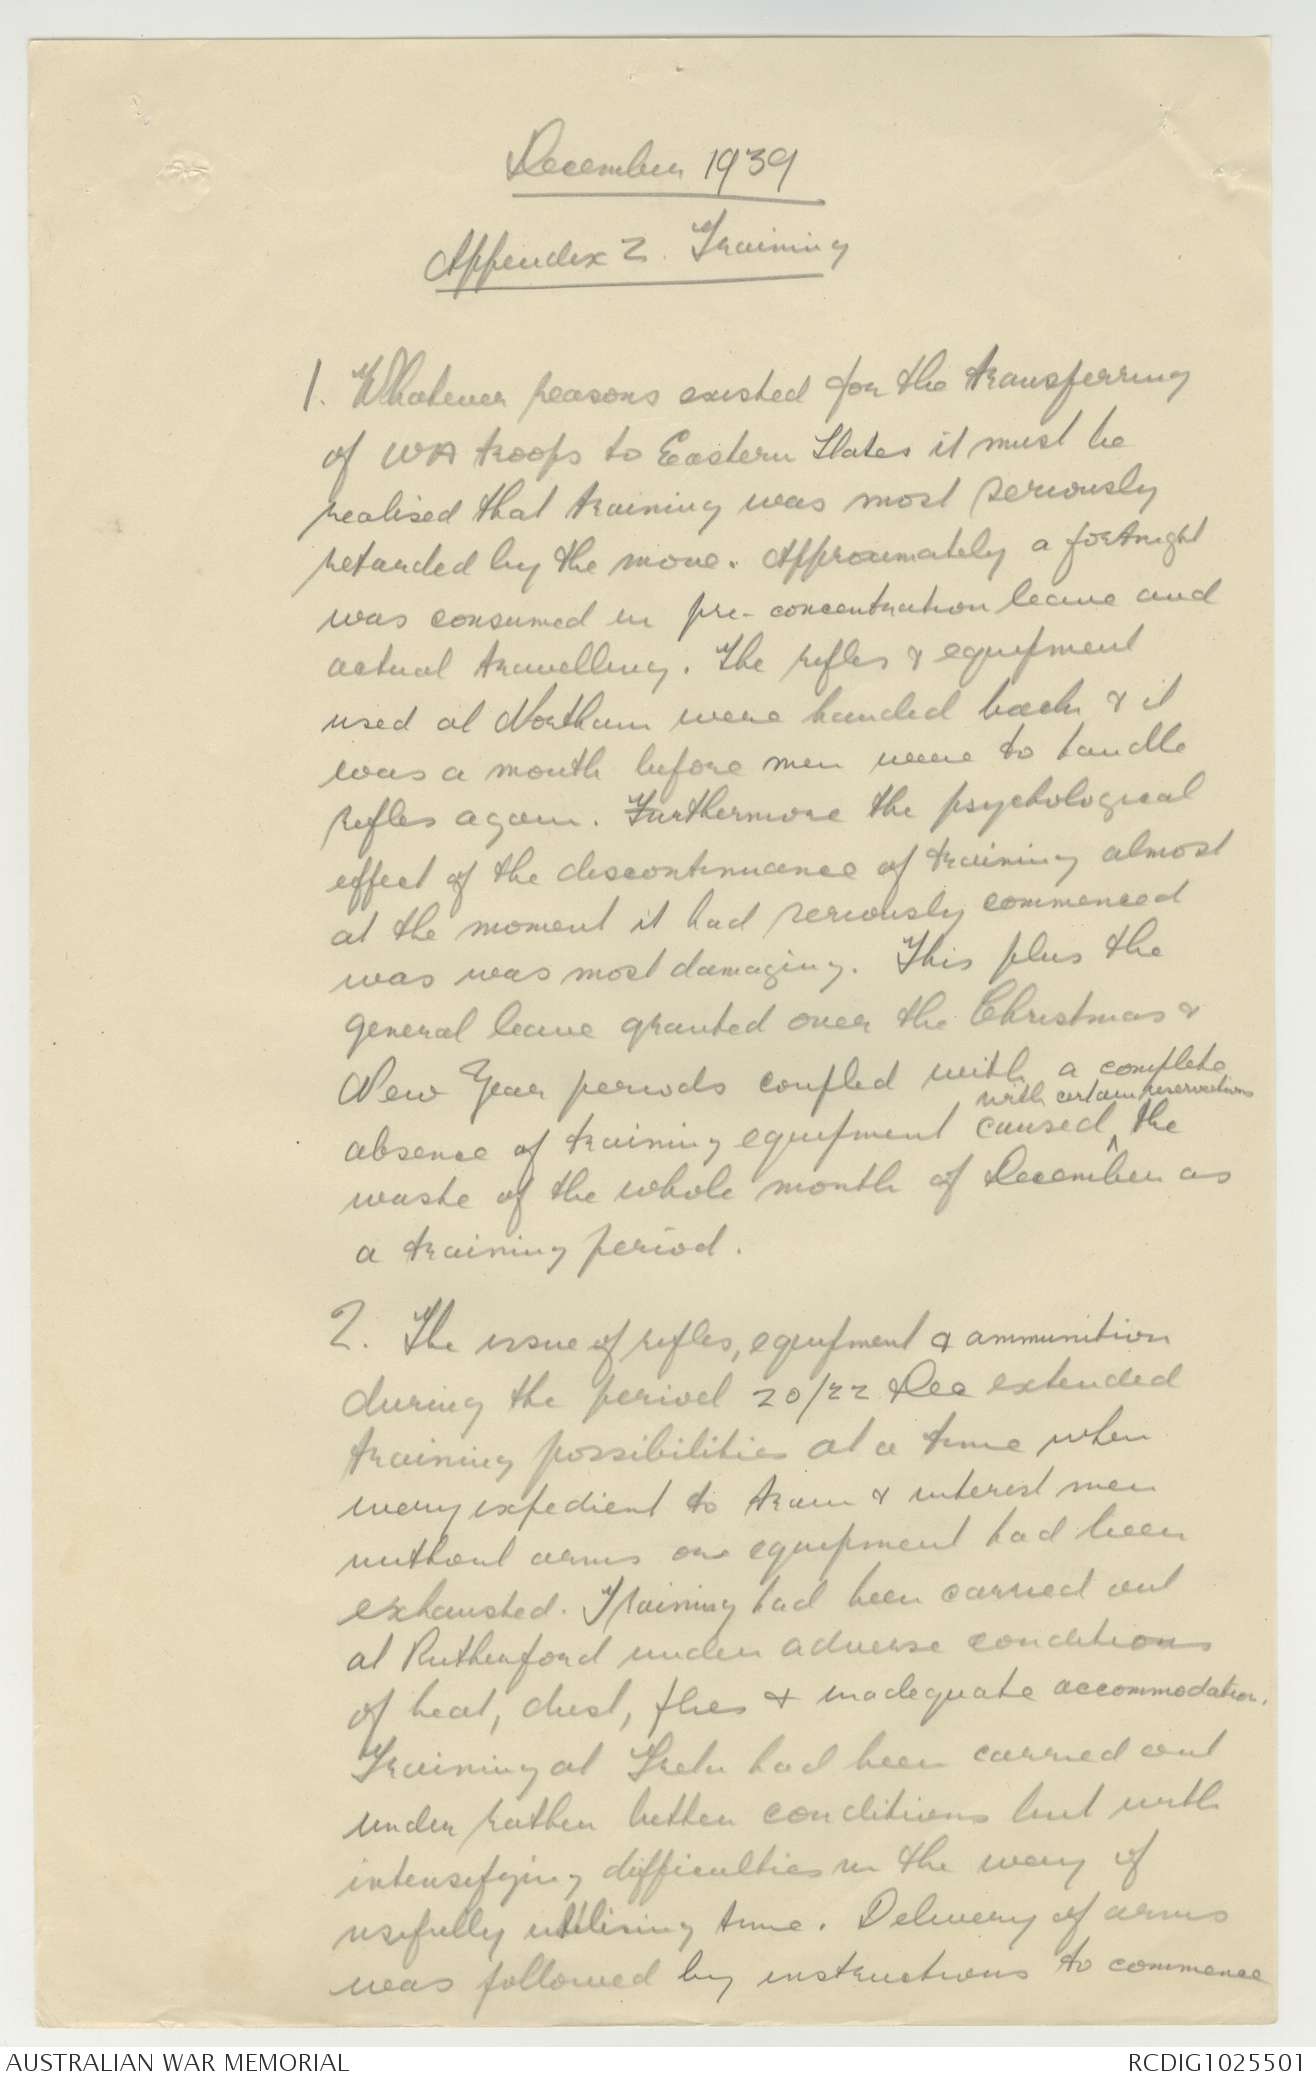 December 1939
Appendix 2. Training
1. Whatever reasons existed for the transferring
of WA troops to Eastern States it must be
realised that training was most seriously
retarded by the move. Approximately a fortnight
was consumed in pre-concentration leave and
actual travelling. The rifles & equipment
used at Northam were handed back & it
was a month before men were to handle
rifles again. Furthermore the psychological
effect of the discontinuance of training almost
at the moment it had seriously commenced
was was most damaging. This plus the
general leave granted over the Christmas &
New Year periods coupled with a complete
with certain reservations
absence of training equipment caused ^ the
waste of the whole month of December as
a training period.
2. The issue of rifles, equipment & ammunition
during the period 20/22 Dec extended
training possibilities at a time when
every expedient to train & interest men
without arms or equipment had been
exhausted. Training had been carried out
at Rutherford under adverse conditions
of heat, dust, flies & inadequate accommodation.
Training at Greta had been carried out
under rather better conditions but with
intensifying difficulties in the way of
usefully utilising time. Delivery of arms
was followed by instructions to commence
AUSTRALIAN WAR MEMORIAL
RCDIG1025501